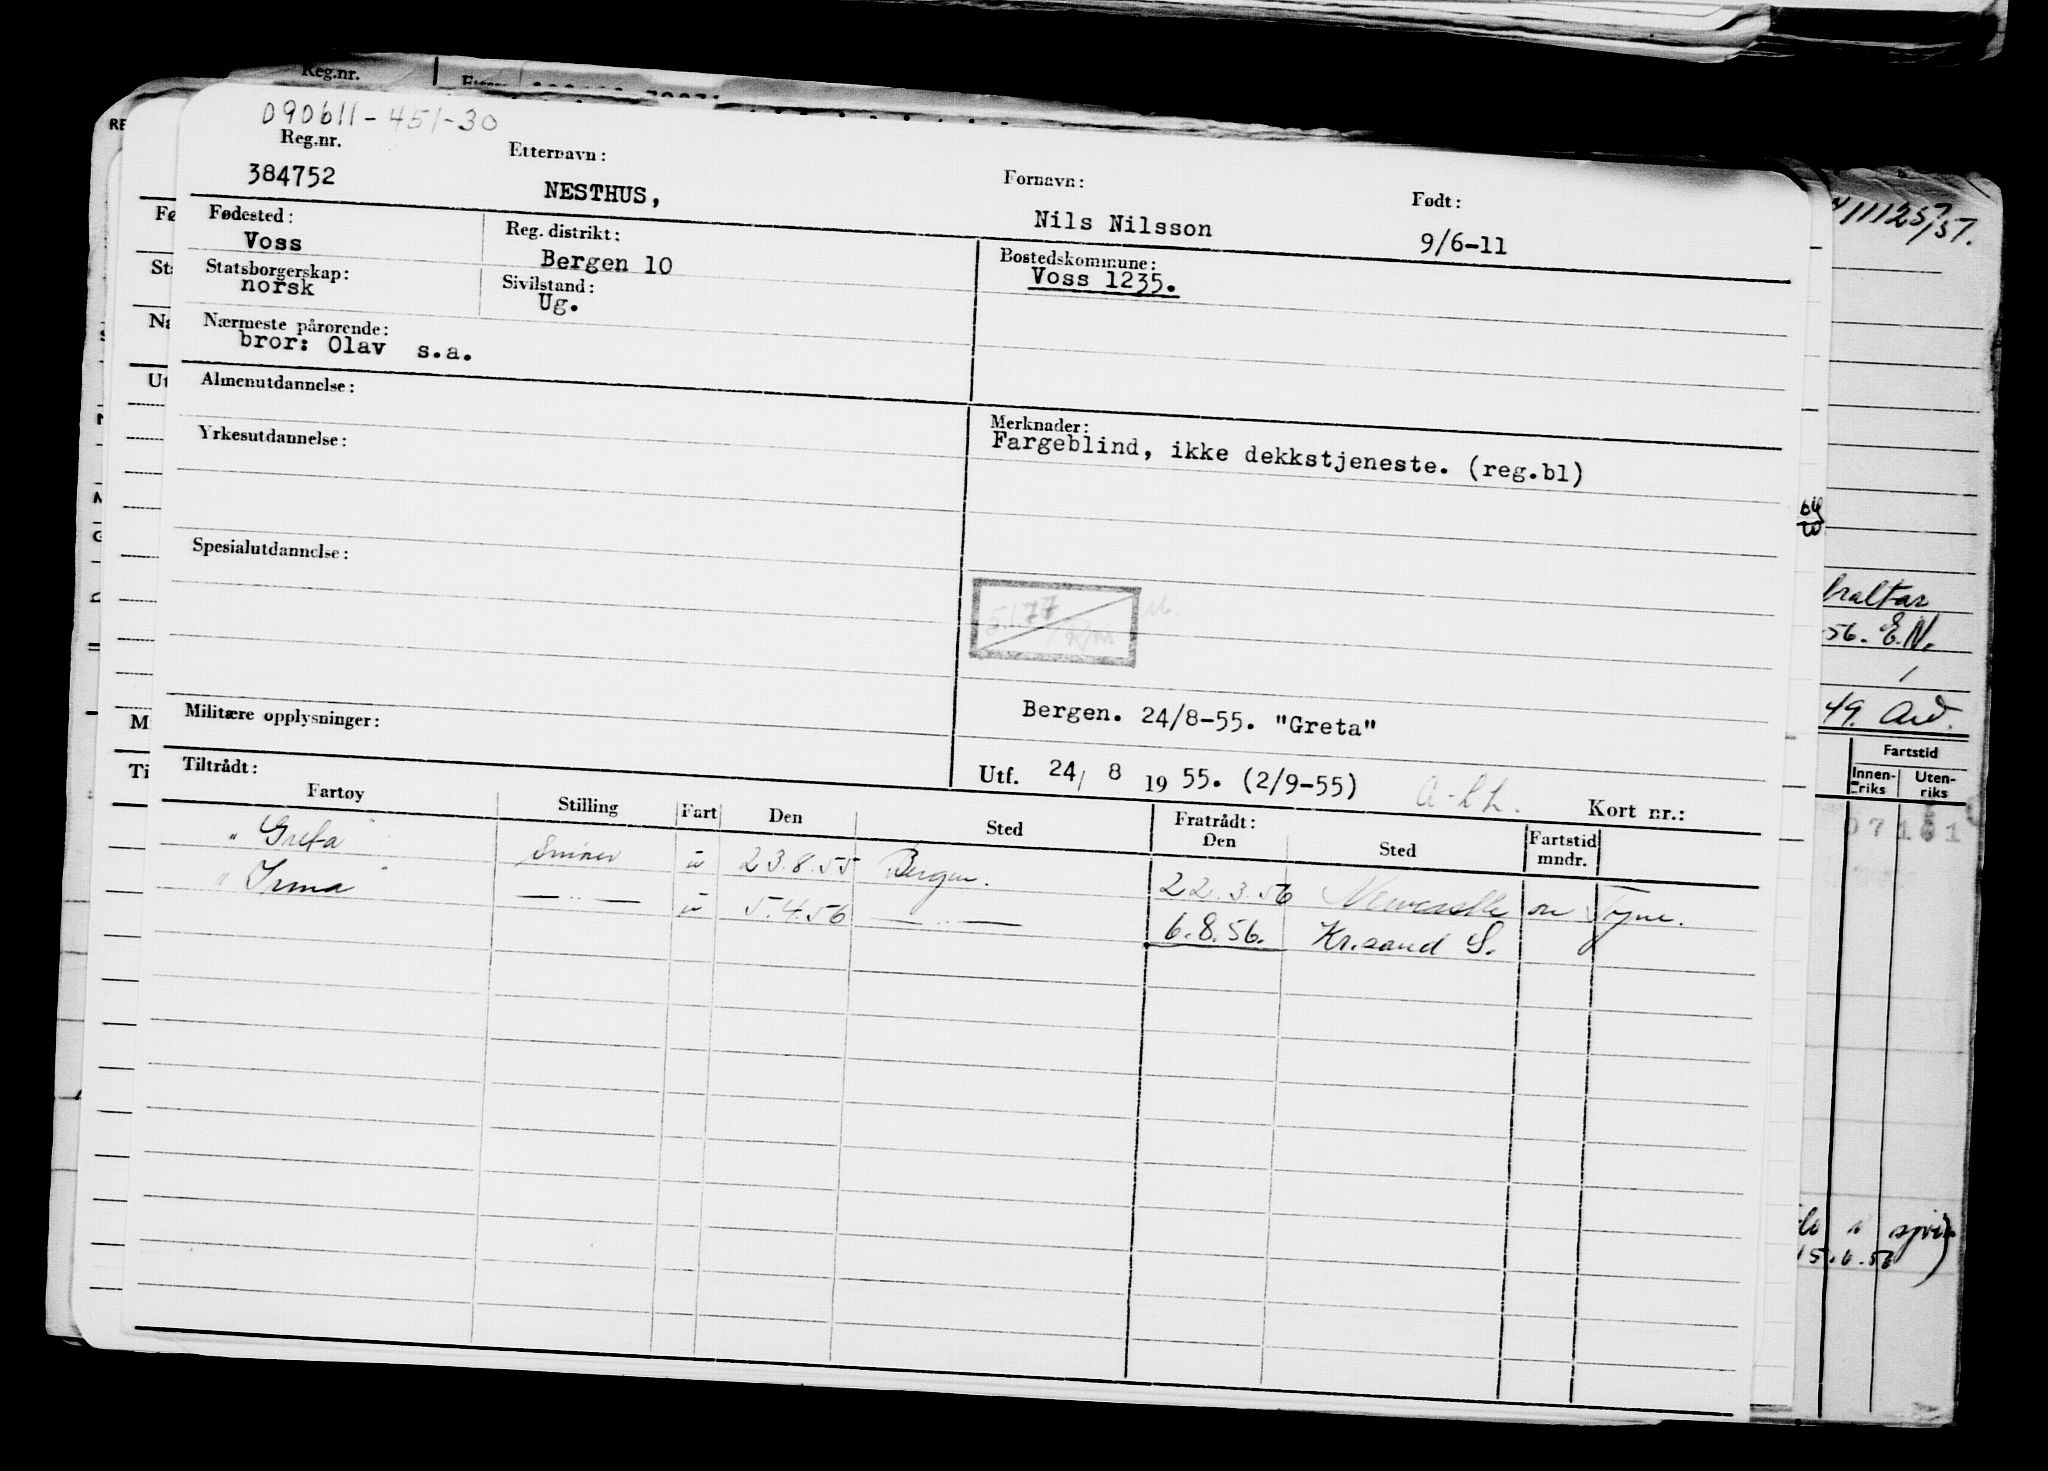 Reg.nr.
090611-451-30
Reg.nr. Etternavn: Fornavn: Født:
384752 NESTHUS, Nils Nilsson 9/6-11
Fødested: Reg. distrikt: Bostedskommune:
Voss Bergen 10 Voss 1235.
Statsborgerskap: Sivilstand:
norsk Ug.
Nærmeste pårørende:
bror: Olav s.a.
Almenutdannelse:
Merknader:
Yrkesutdannelse: Fargeblind, ikke dekkstjeneste. (reg.bl)
Spesialutdannelse:
Militære opplysninger: Bergen. 24/8-55. "Greta"
Tiltrådt: Utf. 24/ 8 19 55. (2/9-55) Kort nr.:
Fartøy Stilling Fart Den Sted Fratrådt: Den Sted Fartstid mndr.
"Greta" Smører u 23.8.55 Bergen. 22.3.56 Newcastle on Tyne.
"Irma" — " — u 5.4.56 — " — 6.8.56. Kr.sand S.
56. E.N.
49.
Fartstid
Innen-riks Uten-riks